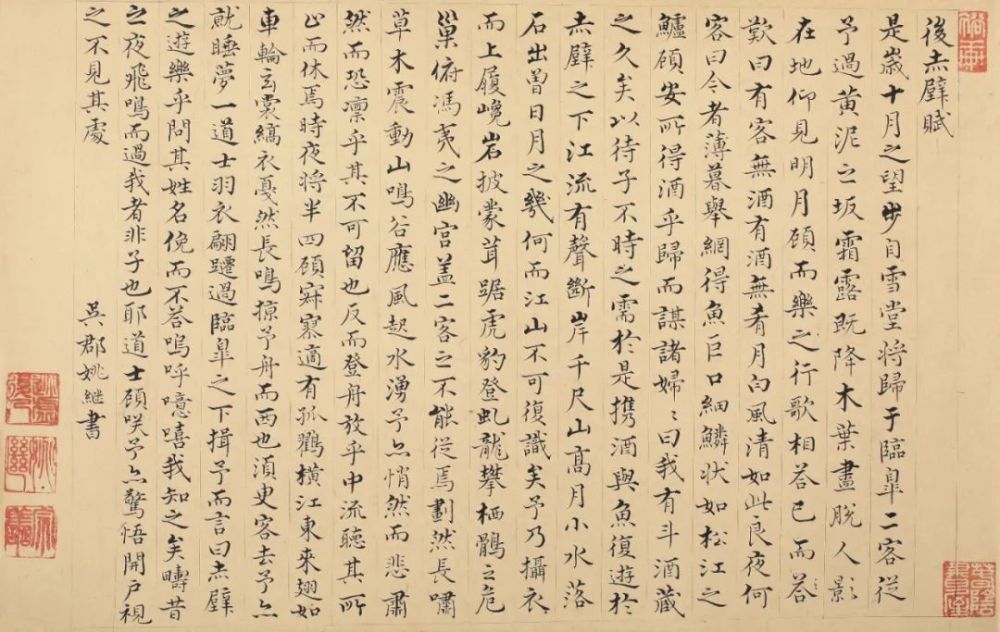 後赤壁賦
是歲十月之望步自雪堂將歸于臨皋二客從
予過黃泥之坂霜露既降木葉盡脫人影
在地仰見明月顧而樂之行歌相答已而
歎曰有客無酒有酒無肴月白風清如此良夜何
客曰今者薄暮舉網得魚巨口細鱗狀如松江之
鱸顧安所得酒乎歸而謀諸婦〻曰我有斗酒藏
之久矣以待子不時之需於是携酒與魚復遊於
赤壁之下江流有聲斷岸千尺山高月小水落
石出曾日月之幾何而江山不可復識矣予乃攝衣
而上履巉岩披蒙茸踞虎豹登虬龍攀栖鶻之危
巢俯馮夷之幽宮盖二客之不能從焉劃然長嘯
草木震動山鳴谷應風起水湧予亦悄然而悲肅
然而恐凛乎其不可留也反而登舟放乎中流聽其所
止而休焉時夜將半四顧寂寥適有孤鶴橫江東來翅如
車輪玄裳縞衣戛然長鳴掠予舟而西也湏更客去予亦
就睡夢一道士羽衣翩躚過臨皋之下揖予而言曰赤壁
之遊樂乎問其姓名俛而不答嗚呼噫嘻我知之矣疇昔
之夜飛鳴而過我者非子也耶道士顧笑予亦驚悟開戶視
之不見其處
吳郡姚繼書